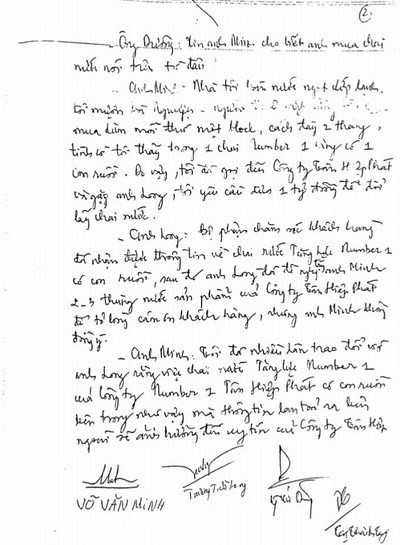 2
- Ông Dưỡng: Xin anh Minh cho biết anh mua chai
nước nói trên từ đâu
- Anh Minh - Nhà tôi bán nước ngọt
tôi mượn bà Nguyện - người
mua dùm mỗi thứ một block, cách đây 2 tháng,
tình cờ tôi thấy trong 1 chai Number 1 có 1
con ruồi. Do vậy, tôi đã gọi đến Công ty Tân Hiệp Phát
và gặp anh Long, tôi yêu cầu đưa 1 tỷ đồng để đổi
lấy chai nước.
- Anh Long: Bộ phận chăm sóc khách hàng
đã nhận được thông tin về chai nước Tăng lực Number 1
có con ruồi, sau đó anh Long đã đề nghị tặng anh Minh
2-3 thùng nước sản phẩm của Công ty Tân Hiệp Phát
để tỏ lòng cám ơn khách hàng, nhưng anh Minh không
đồng ý.
- Anh Minh: Tôi đã nhiều lần trao đổi với
anh Long rằng việc chai nước Tăng lực Number 1
của Công ty Number 1 Tân Hiệp Phát có con ruồi
bên trong như vậy mà thông tin lan toả ra bên
ngoài sẽ ảnh hưởng đến uy tín của Công ty Tân Hiệp
VÕ VĂN MINH
Trương Tiểu Long